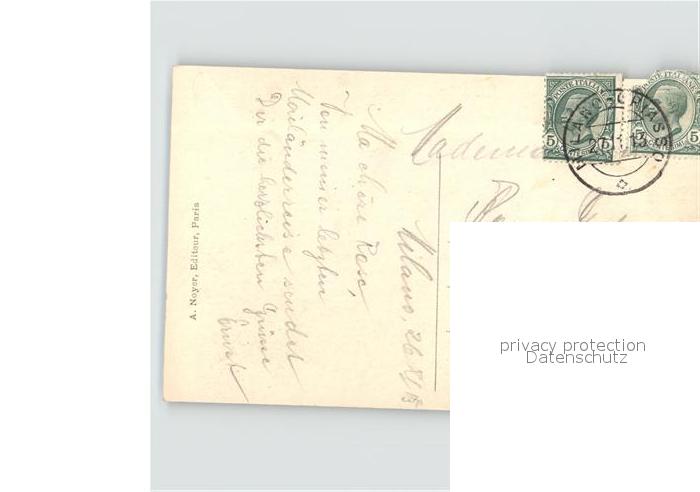 Milano, 26 XI 13
Ma chère Rose,
Von meiner letzten
Mailänderreise sendet
Dir die herzlichsten Grüsse
Ernst
A. Noyer, Editeur, Paris
POSTE ITALIANE
5
5
POSTE ITALIANE
5
5
MILANO
13
privacy protection
Datenschutz